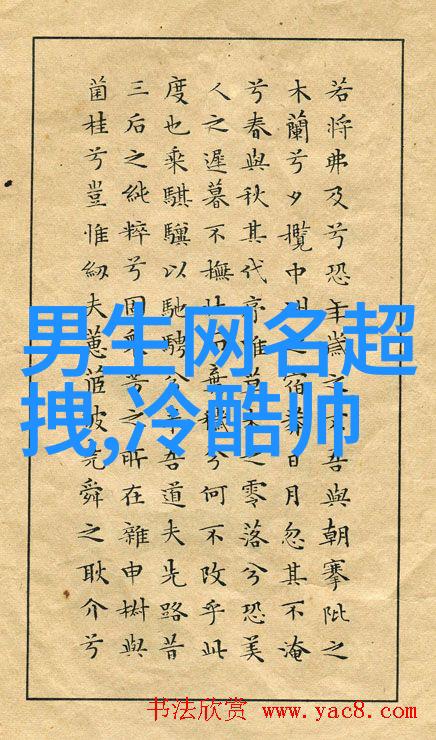 若将弗及兮恐年歲之吾與朝搴阰之
木蘭兮夕攬中宿莽日月忽其不淹
兮春與秋其代序惟之零落兮恐美
人之遲暮不撫棄穢兮何不改乎此
度也乘騏驥以馳騁兮吾道夫先路昔
三后之純粹兮固芳之所在雜申椒與
菌桂兮豈惟紉夫蕙茝彼堯舜之耿介兮
男生网名超
拽,冷酷帅
书法欣赏 www.yac8.com